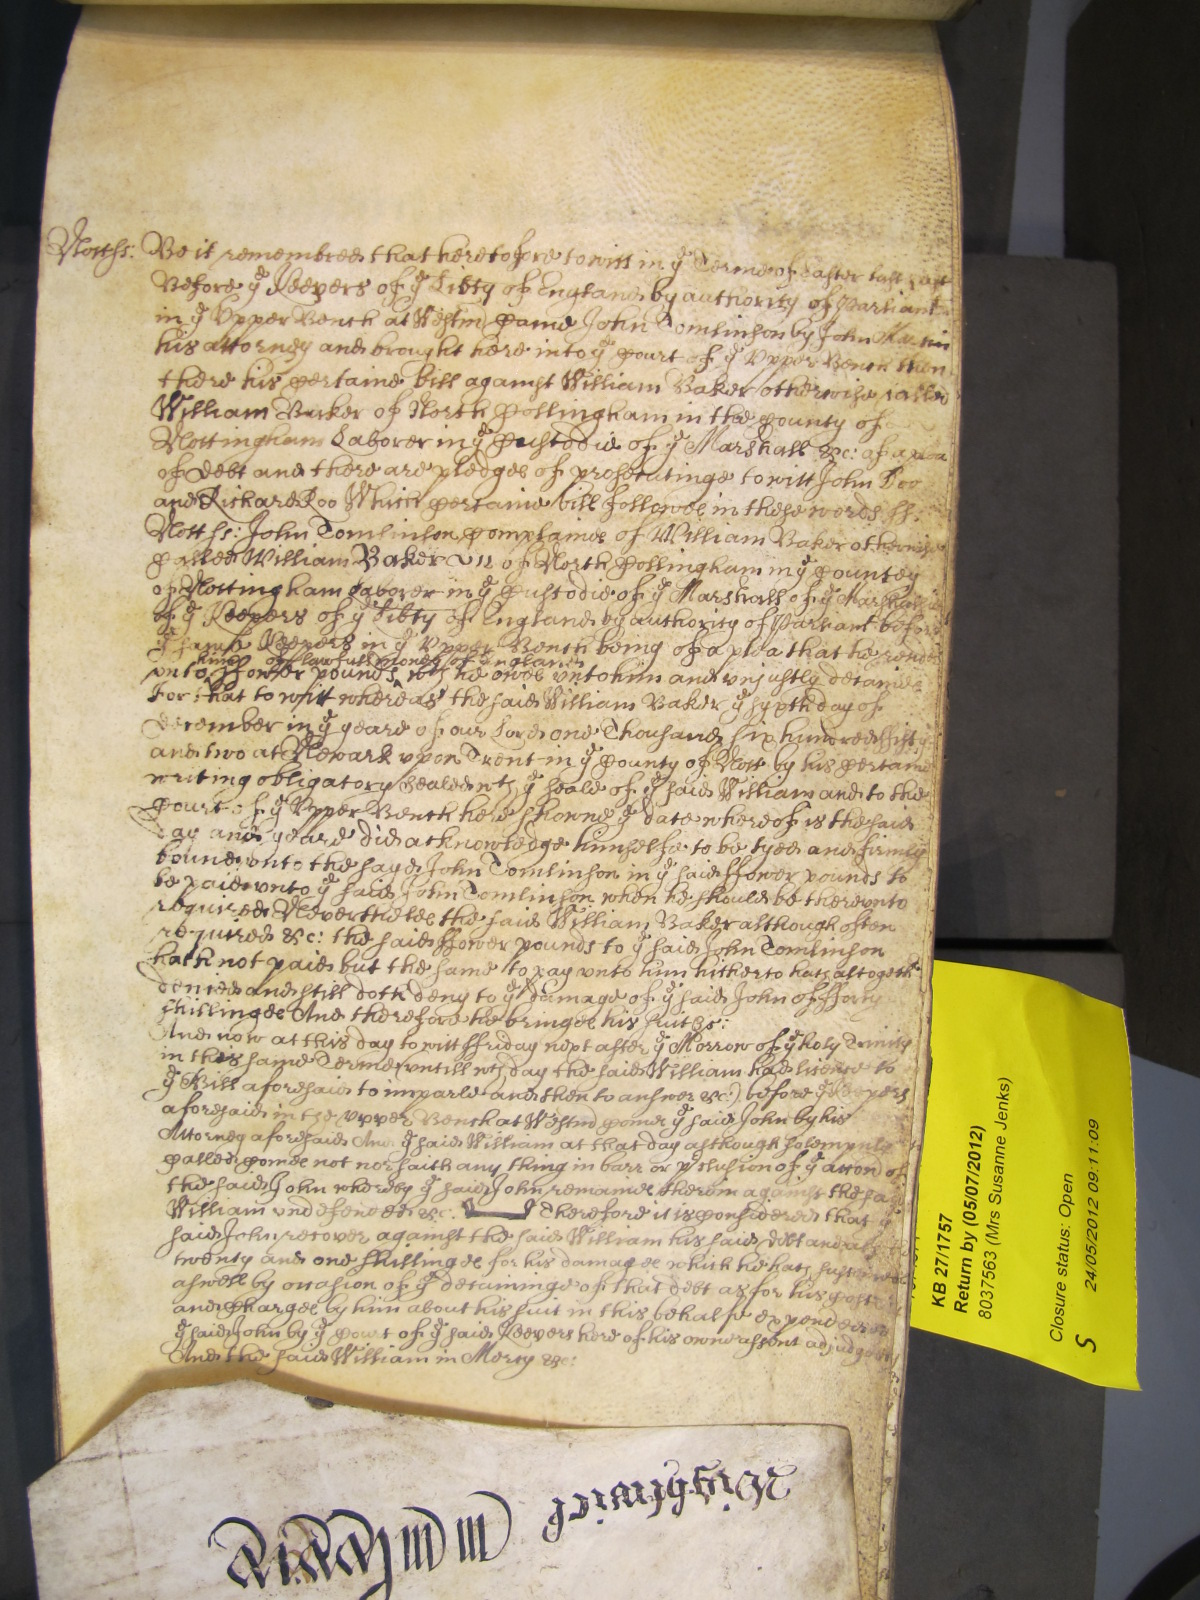 Notts:
Be it remembred that heretofore to witt in ye Terme of Easter last past
Before ye Keepers of ye Libty of England by authority of Parliamt
in ye Upper Bench at Westm came John Tomlinson by John Martin
his attorney and brought here into ye Court of ye Upper Bench then
there his certaine bill against William Baker otherwise called
William Baker of North Collingham in the County of
Nottingham Laborer in ye Custodie of ye Marshall &c: of a plea
of debt and there are pledges of prosecutinge to witt John Doo
and Richard Roo Which certaine bill followes in these words ss:
Notts: John Tomlinson complaines of William Baker otherwise
called William Baker of North Collingham in ye Countey
of Nottingham Laborer in ye Custodie of ye Marshall of ye Marshalsie
of ye Keepers of ye Libty of England by authority of Parliamt before
ye same Keepers in ye Upper Bench being of a plea that he render
of lawfull money of England
unto him ffower pounds wch he owes unto him and unjustly detaines
For that to witt whereas the said William Baker ye syxth day of
December in ye yeare of our Lord one Thousand six hundred fifty
and two at Newark upon Trent in ye County of Nott by his certaine
writing obligatory sealed wth ye seale of ye said William and to the
Court of ye Upper Bench here showne ye date whereof is the said
day and yeare did acknowledge himselfe to be tyed and firmly
bound unto the sayd John Tomlinson in ye said ffower pounds to
be paid unto ye said John Tomlinson when he should be thereunto
required Neverthelesse the said William Baker although often
required &c: the said ffower pounds to ye said John Tomlinson
hath not paid but the same to pay unto him hitherto hath altogethr
denied and still doth deny to ye damage of ye said John of fforty
shillinges And therefore he bringes his suit &c:
And now at this day to witt ffriday next after ye Morrow of ye holy Trinity
in this same Terme untill wch day the said William had licence to
ye Bill aforesaid to imparle and then to answer &c:) before ye Keepers
aforesaid in the Upper Bench at Westm comes ye said John by his
Attorney aforesaid And ye said William at that day although solempnly
called comes not nor saith any thing in barr or pclusion of ye accon of
the said John whereby ye said John remaines therein against the said
William undefended &c. Therefore it is considered that ye
said John recover against the said William his said debt and also
twenty and one shillinges for his damages which he hath susteined
aswell by occasion of ye detaininge of that debt as for his costs
and charges by him about his suit in this behalfe expended
ye said John by ye Court of ye said Keepers here of his owne assent adjudged
And the said William in Mercy &c:
KB 27/1757
Return by (05/07/2012)
8037563 (Mrs Susanne Jenks)
Closure status: Open
24/05/2012 09:11:09
S